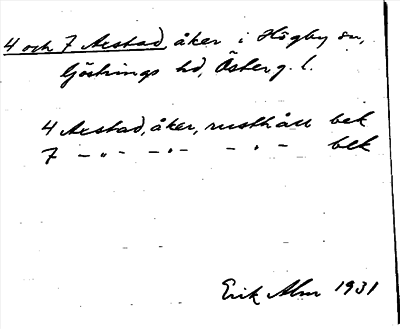 4 och 7 Axstad, åker i Högby sn,
Göstrings hd, Österg. l.
4 Axstad, åker, rusthåll bek
7 -"- -"- -"- bek
Erik Alm 1931